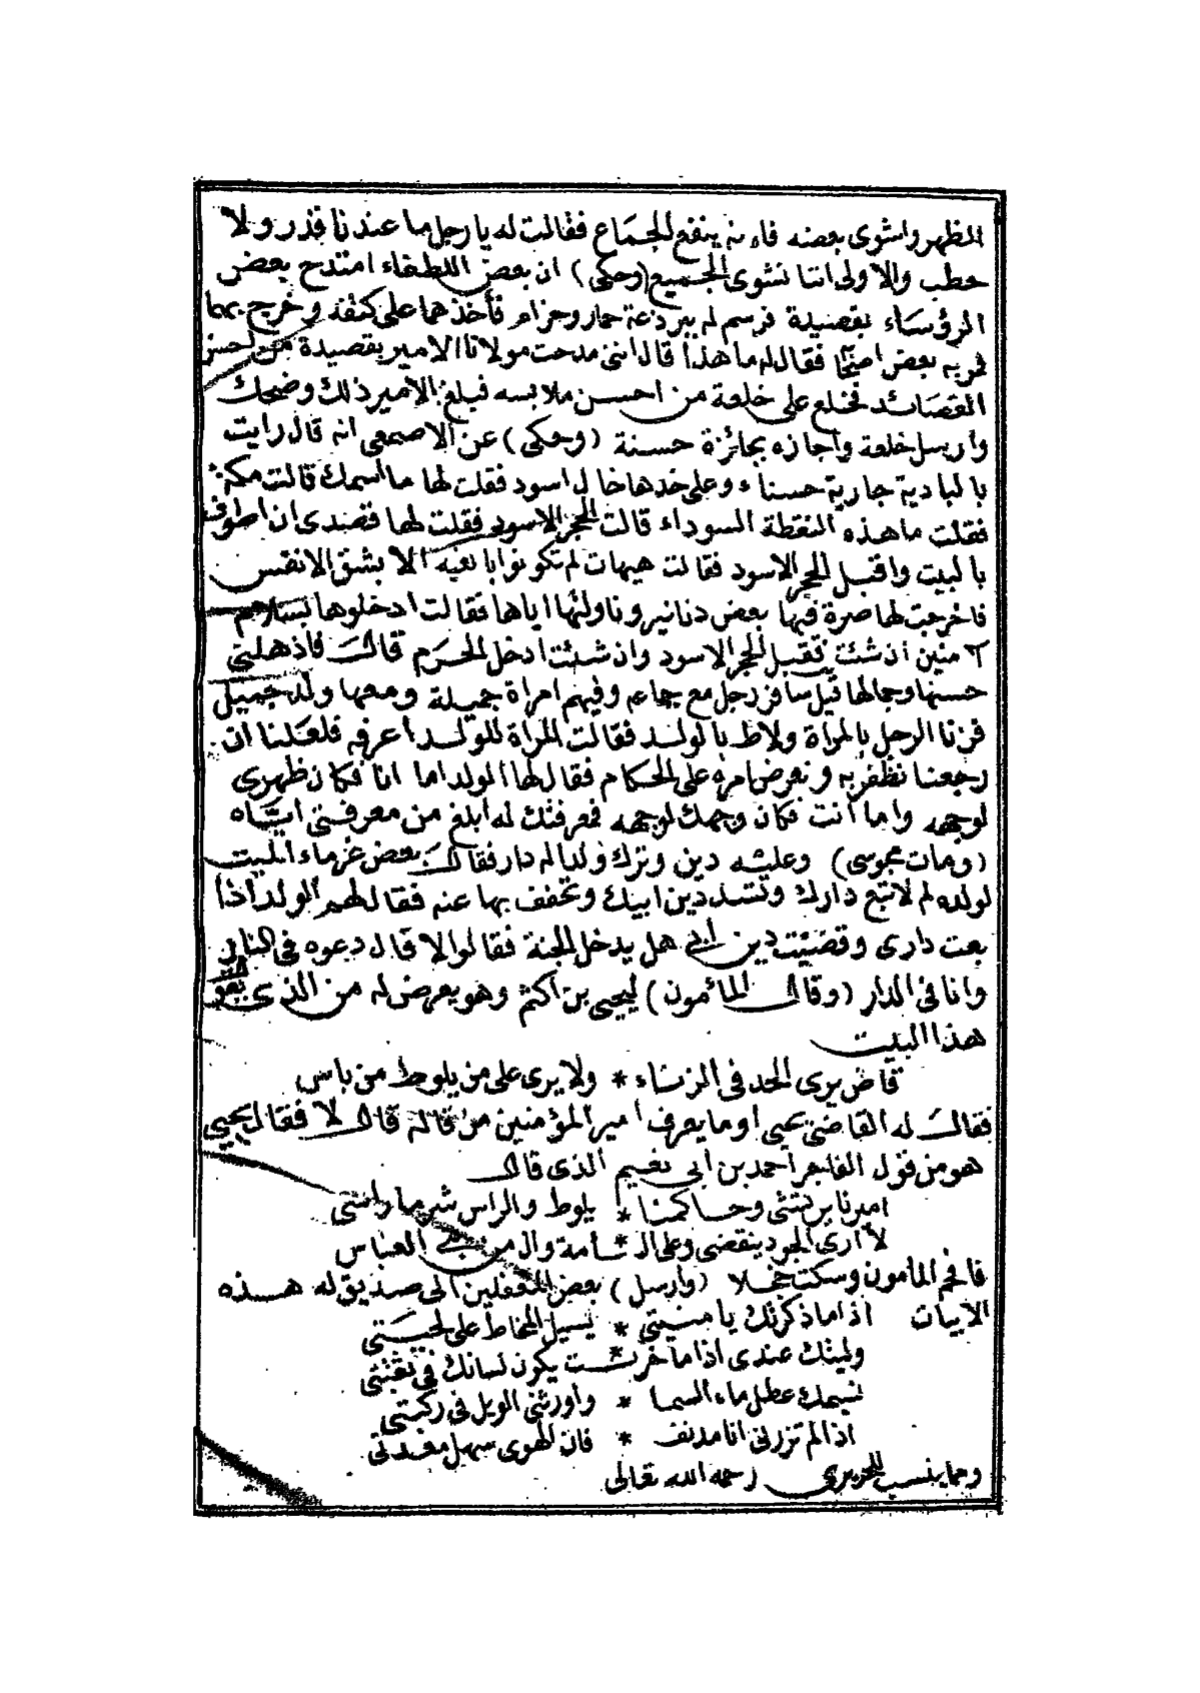 الظهر واشوى بعضه فاء نه ينفع للجماع فقالت له يا رجل ما عندنا قدر ولا
حطب والاولى اننا نشوى الجميع (وحكى) ان بعض اللطفاء امتدح بعض
الرؤساء بقصيدة فرسم له ببرذعة حمار وحزام فأخذهما على كتفه وخرج بهما
فمر به بعض اصحابه فقال له ما هذا قال اننى مدحت مولانا الامير بقصيدة من احسن
القصائد فخلع على خلعة من احسن ملابسه فبلغ الأمير ذلك وضحك
وارسل خلعة واجازه بجائزة حسنة (وحكى) عن الاصمعى انه قال رايت
بالبادية جارية حسناء وعلى خدها خال اسود فقلت لها ما اسمك قالت مكة
فقلت ما هذه النقطة السوداء قالت الحجر الاسود فقلت لها قصدى ان اطوف
بالبيت واقبل الحجر الاسود فقالت هيهات لم تكونوا بالغيه الا بشق الانفس
فاخرجت لها صرة فيها بعض دنانير وناولتها اياها فقالت ادخلوها بسلام
آمنين ان شئت فقبل الحجر الاسود وان شئت ادخل الحرم قال فاذهلنى
حسنها وجمالها قيل سافر رجل مع جماعه وفيهم امراة جميلة ومعها ولد جميل
فزنا الرجل بالمراة ولاط بالولد فقالت المراة للولد اعرفه فلعلنا ان
رجعنا نظفر به ونعرض امره على الحكام فقال لها الولد اما انا فكان ظهرى
لوجهه واما أنت فكان وجهك لوجهه فمعرفتك له أبلغ من معرفتى ايّاه
(ومات مجوسى) وعليه دين وترك ولدا له دار فقال بعض غرماء الميت
لولده لم لا تبع دارك وتسد دين ابيك وتخفف بها عنه فقال لهم الولد اذا
بعت دارى وقضيت دين ابى هل يدخل الجنة فقالوا لا قال دعوه فى النار
وانا فى الدار (وقال المأمون) ليحيى بن اكثم وهو يعرض له من الذى يقول
هذا البيت
قاض يرى الحد فى الزناء * ولا يرى على من يلوط من باس
فقال له القاضى يحيى او ما يعرف أمير المؤمنين من قاله قال لا فقال يحيى
هو من قول الفاجر أحمد بن أبى نعيم الذى قال
اميرنا يرتشى وحاكمنا * يلوط والراس شر ما راس
لا أرى الجور ينقضى وعلى ال * أمة وال من بنى العباس
فافحم المأمون وسكت خجلا (وارسل) بعض المغفلين الى صديق له هذه
الابيات اذا ما ذكرتك يا منيتى * يسيل المخاط على لحيتى
وليتك عندى اذا ما خريت * يكون لسانك فى
عطل ماء السما * واورثنى الويل فى ركبتى
اذا لم تزرنى انا مدنف * فان الهوى سهل معدتى
ومما ينسب للحريرى رحمه الله تعالى